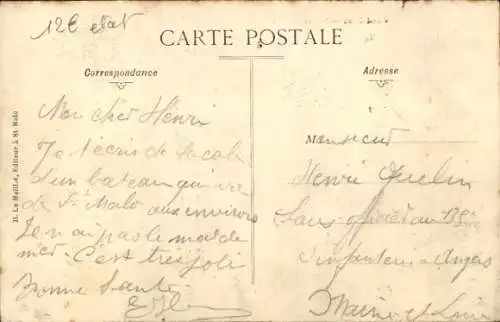 12€ etat
CARTE POSTALE
Correspondance
Mon cher Henri
Je t'écris de la cale
d'un bateau qui va
de St Malo aux environs
Je n'ai pas le mal de
mer. C'est très joli
Bonne Santé
Adresse
Monsieur
Henri
Sous officier au 135e
d'infanterie Angers
Maine et Loire
D. Le Maillot, Editeur à St Malo